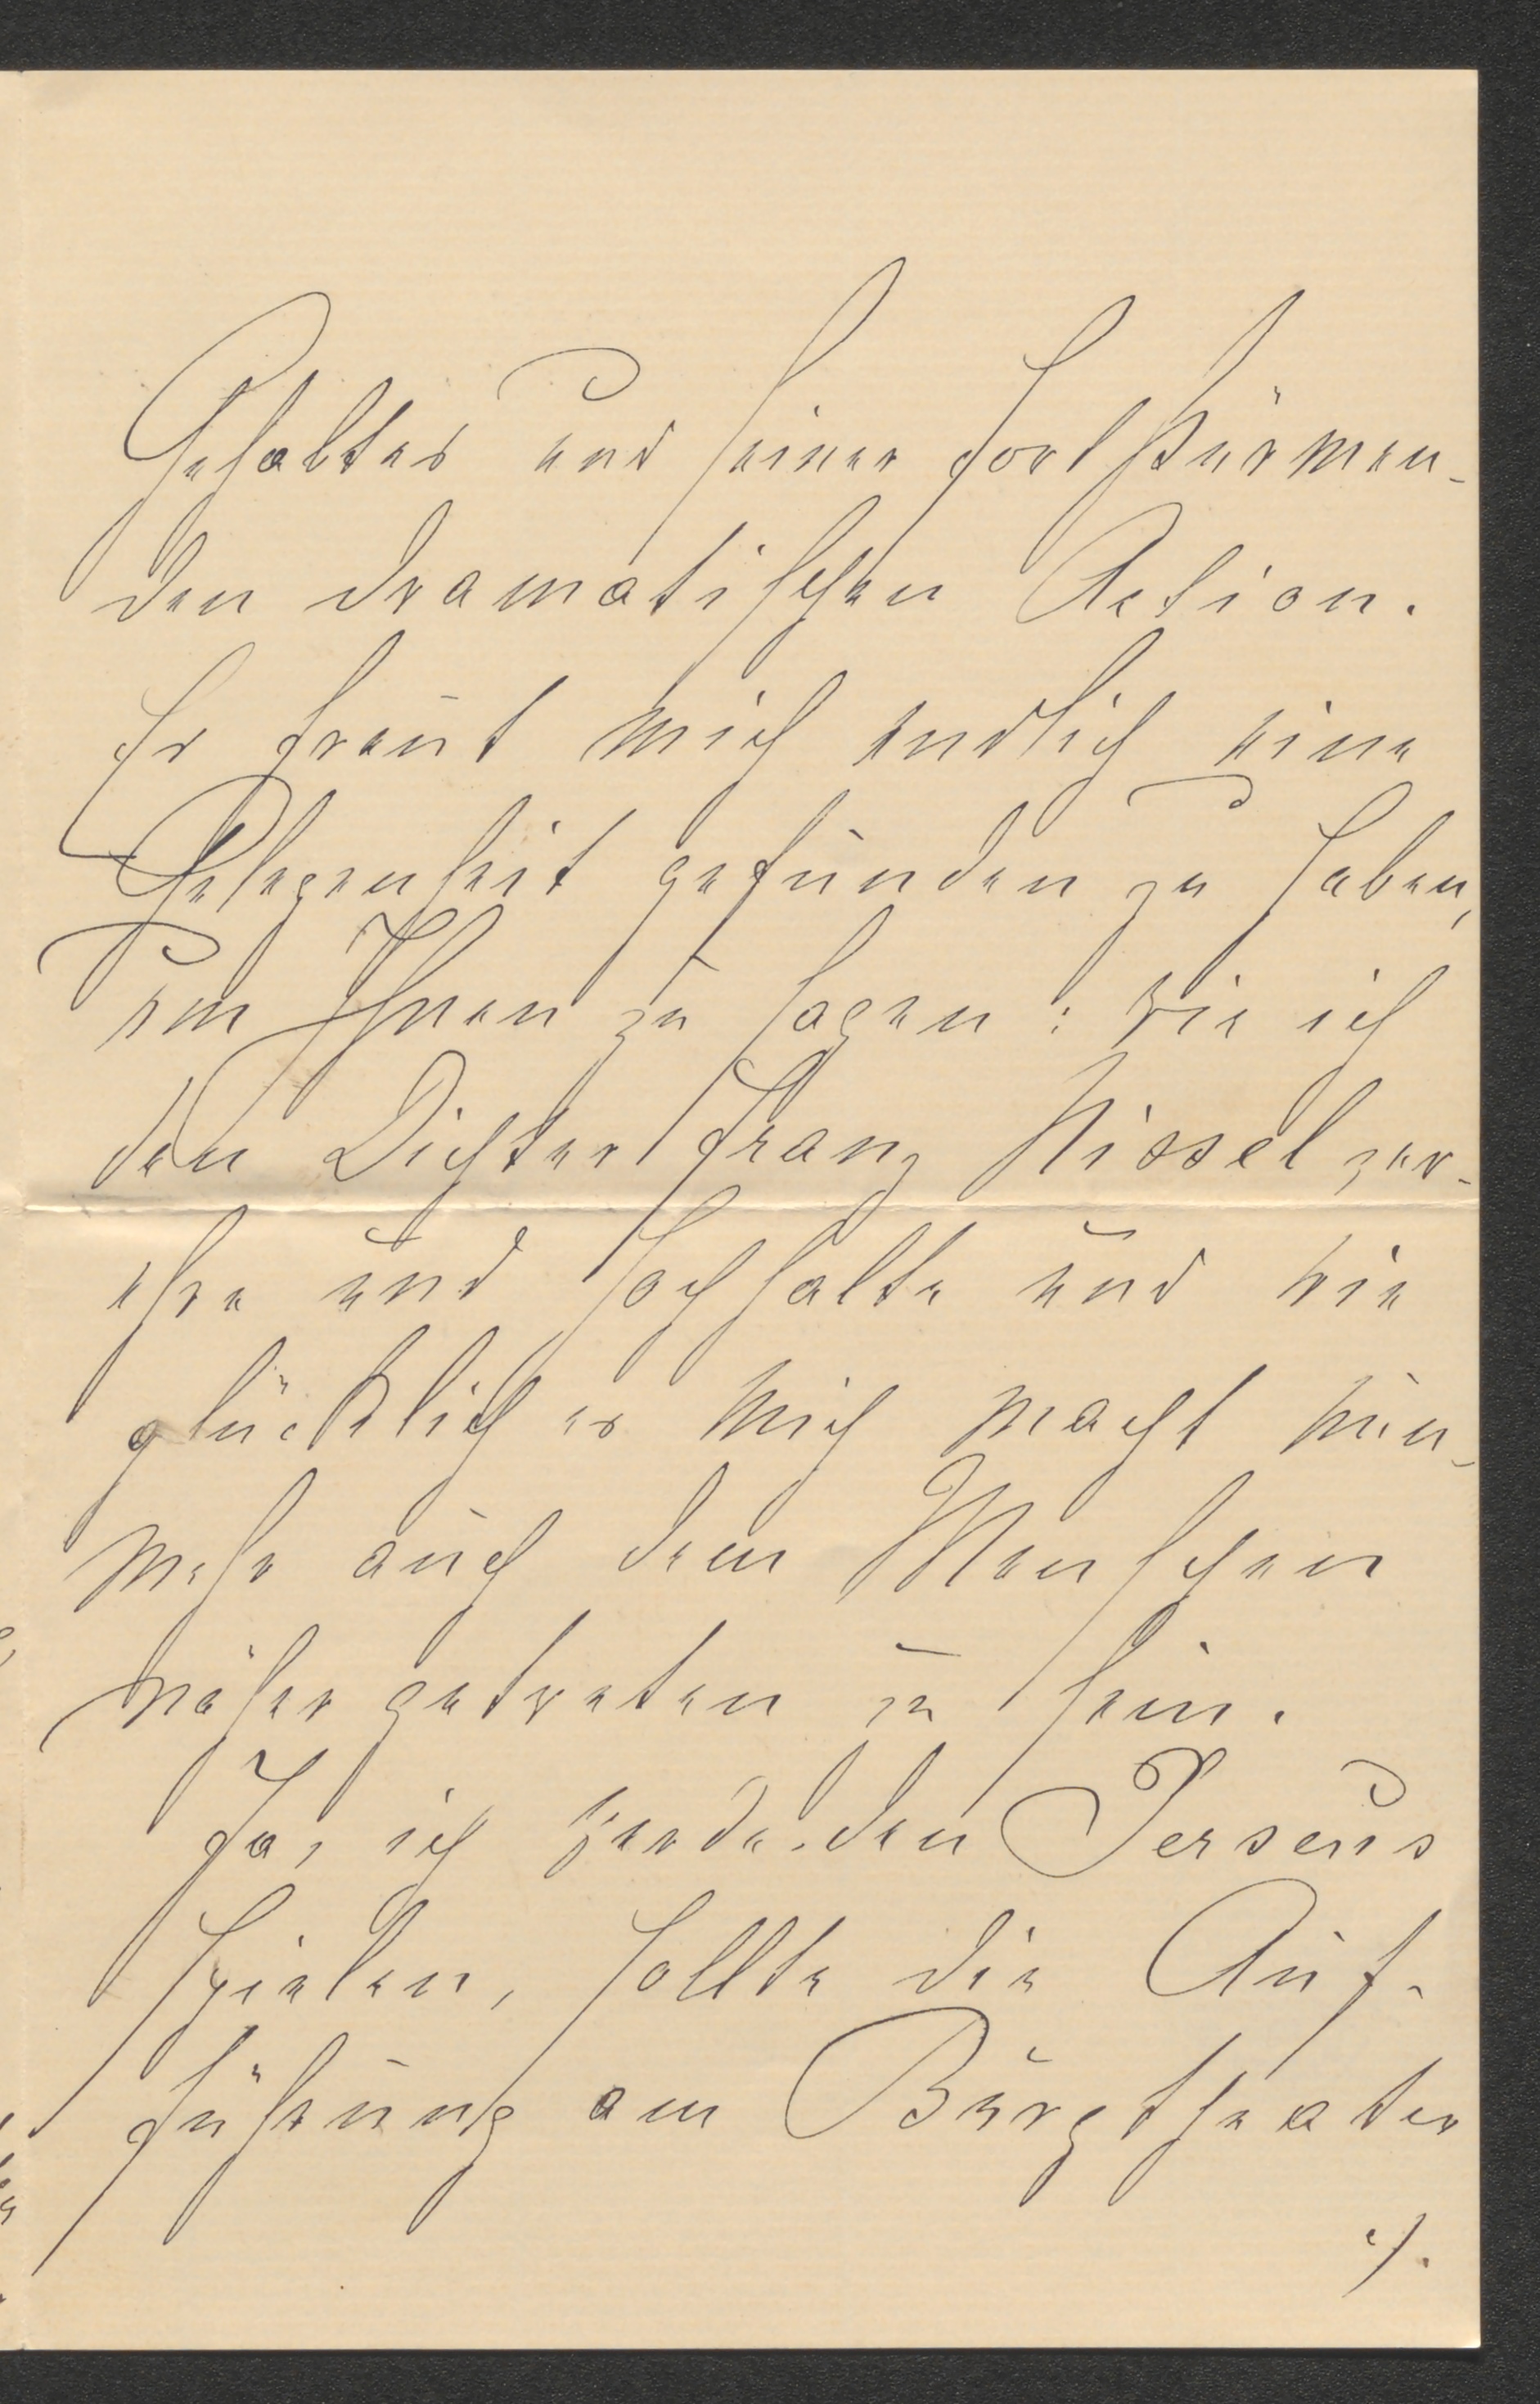 Gehaltes und seiner fortstürmen-
den dramatischen Action.
Es freut mich endlich eine
Gelegenheit gefunden zu haben,
um Ihnen zu sagen: wie ich
den Dichter Franz Nissel ver-
ehre und hochhalte und wie
glücklich es mich macht nun-
mehr auch dem Menschen
näher getreten zu sein.
Ja, ich werde den Perseus
spielen, sollte die Auf-
führung am Burgtheater
./.